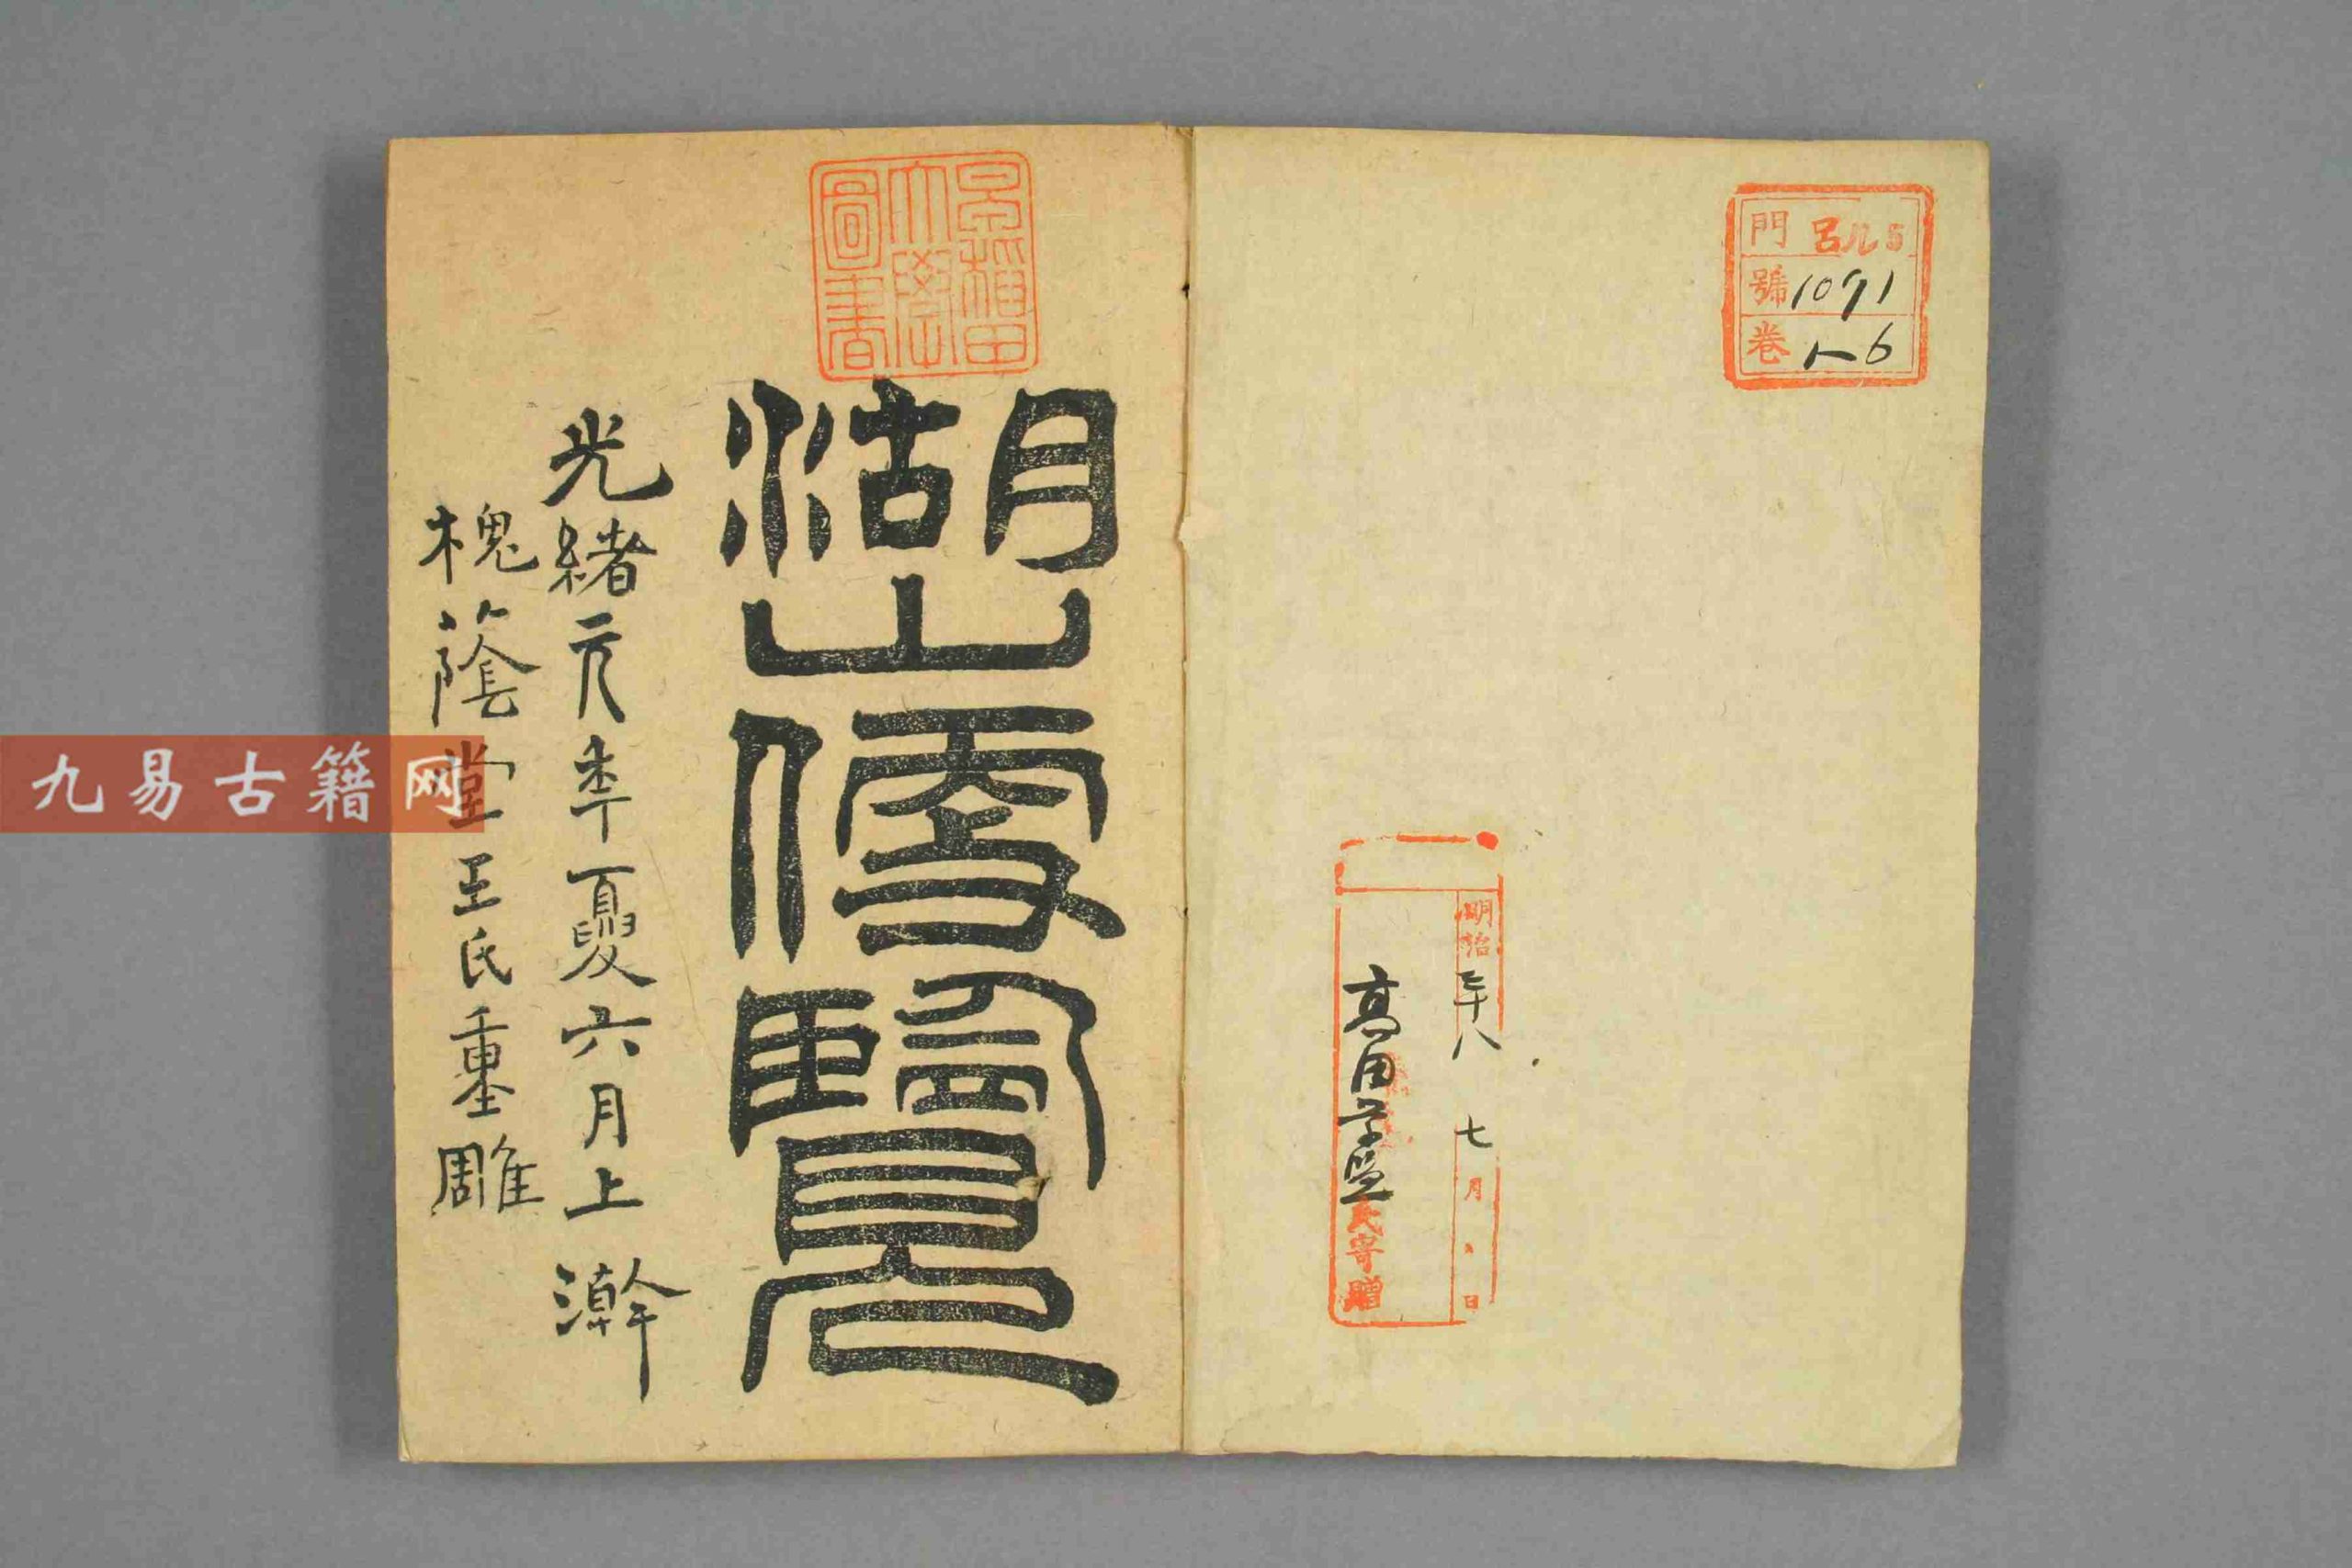 門 呂ル5
號 1091
卷 1-6
明治 八 七月 日
高田 氏寄贈
早稻田大學圖書
湖山便覽
光緒元年夏六月上澣
槐蔭堂王氏重雕
九易古籍网